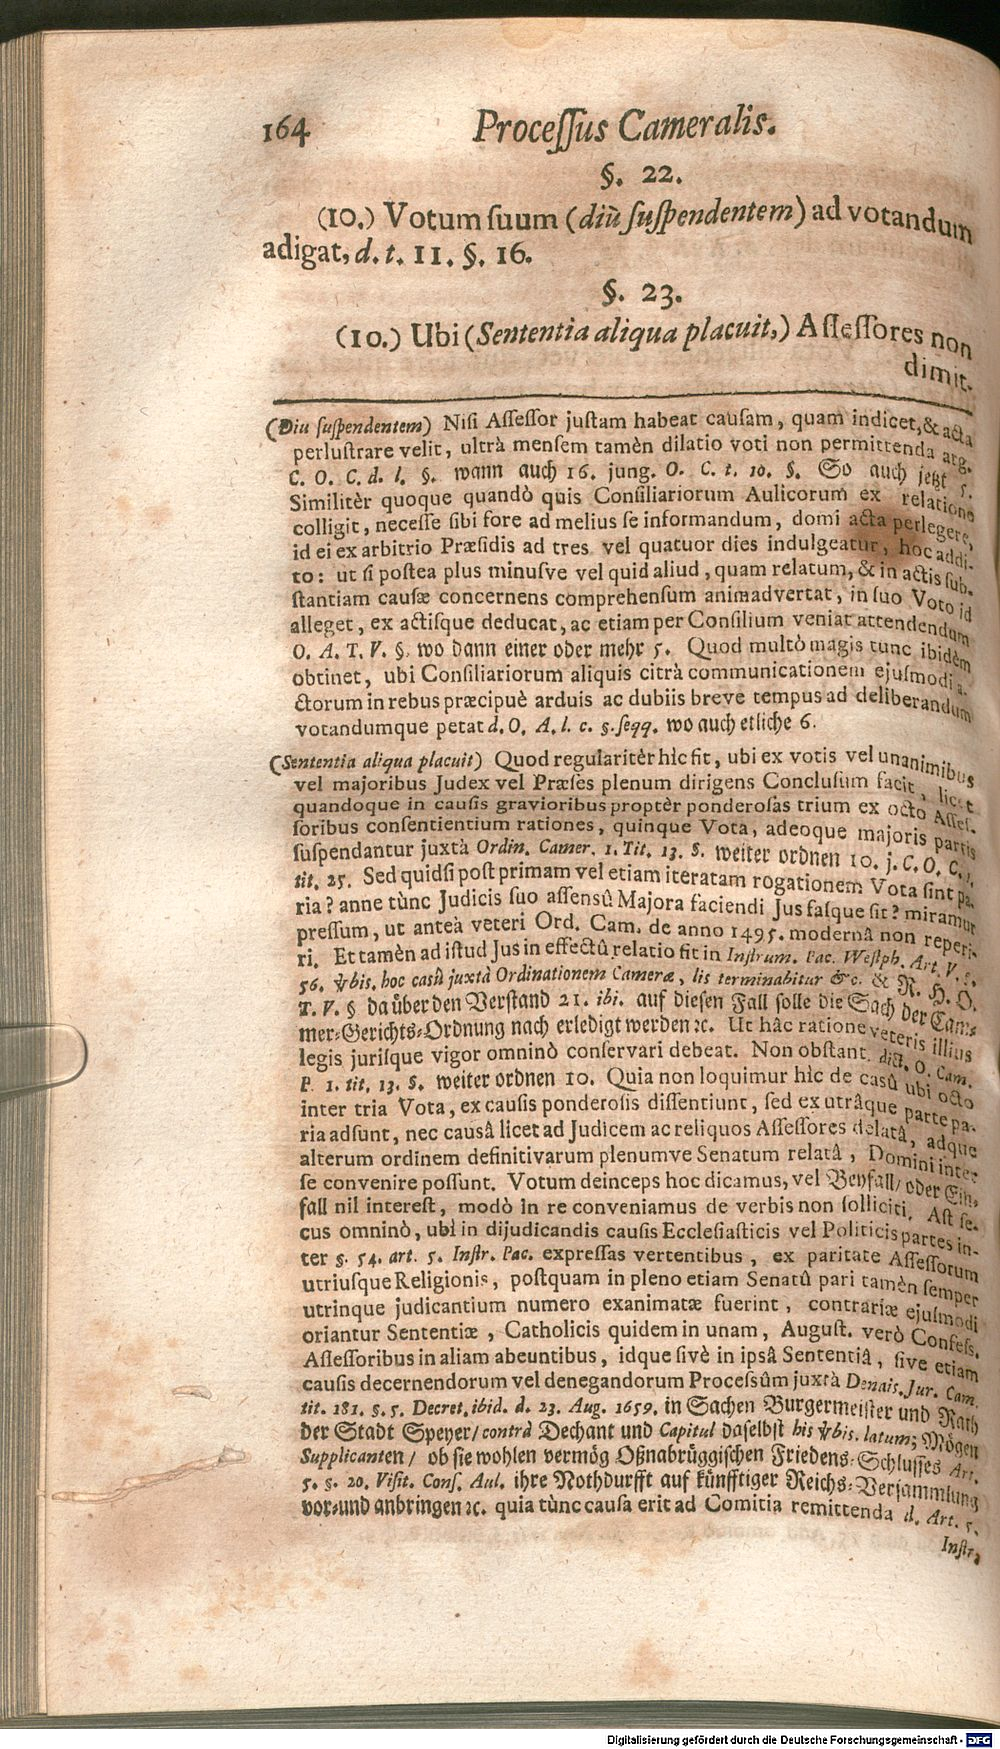 164 Processus Cameralis.
§. 22.
(10.) Votum suum (diù suspendentem) ad votandum
adigat, d. t. 11. §. 16.
§. 23.
(10.) Ubi (Sententia aliqua placuit,) Assessores non
dimit-
(Diu suspendentem) Nisi Assessor justam habeat causam, quam indicet, & acta
perlustrare velit, ultrà mensem tamèn dilatio voti non permittenda arg.
C. O. C. d. l. §. wann auch 16. jung. O. C. t. 10. §. So auch jetzt 5.
Similitèr quoque quandò quis Consiliariorum Aulicorum ex relatione
colligit, necesse sibi fore ad melius se informandum, domi acta perlegere,
id ei ex arbitrio Præsidis ad tres vel quatuor dies indulgeatur, hoc addi-
to: ut si postea plus minusve vel quid aliud, quam relatum, & in actis sub-
stantiam causæ concernens comprehensum animadvertat, in suo Voto id
alleget, ex actisque deducat, ac etiam per Consilium veniat attendendum
O. A. T. V. §. wo dann einer oder mehr 5. Quod multò magis tunc ibidèm
obtinet, ubi Consiliariorum aliquis citrà communicationem ejusmodi a-
ctorum in rebus præcipuè arduis ac dubiis breve tempus ad deliberandum
votandumque petat d. O. A. l. c. §. seqq. wo auch etliche 6.
(Sententia aliqua placuit) Quod regularitèr hìc fit, ubi ex votis vel unanimibus
vel majoribus Judex vel Præses plenum dirigens Conclusum facit, licet
quandoque in causis gravioribus proptèr ponderosas trium ex octo Asses-
soribus consentientium rationes, quinque Vota, adeoque majoris partis
suspendantur juxtà Ordin. Camer. 1. Tit. 13. §. weiter ordnen 10. j. C. O. C. 1.
tit. 25. Sed quid si post primam vel etiam iteratam rogationem Vota sint pa-
ria? anne tùnc Judicis suo assensû Majora faciendi Jus fasque sit? miramur
pressum, ut anteà veteri Ord. Cam. de anno 1495. modernâ non reperi-
ri. Et tamèn ad istud Jus in effectû relatio fit in Instrum. Pac. Westph. Art. V. §.
56. vbis. hoc casû juxtà Ordinationem Cameræ, lis terminabitur &c. & R. H. O.
T. V. § da über den Verstand 21. ibi. auf diesen Fall solle die Sach der Cam-
mer-Gerichts-Ordnung nach erledigt werden ꝛc. Ut hâc ratione veteris illius
legis jurisque vigor omninò conservari debeat. Non obstant. dict. O. Cam.
P. 1. tit. 13. §. weiter ordnen 10. Quia non loquimur hìc de casû ubi octo
inter tria Vota, ex causis ponderosis dissentiunt, sed ex utrâque parte pa-
ria adsunt, nec causâ licet ad Judicem ac reliquos Assessores delatâ, adque
alterum ordinem definitivarum plenumve Senatum relatâ, Domini inter
se convenire possunt. Votum deinceps hoc dicamus, vel Beyfall/ oder Ein-
fall nil interest, modò in re conveniamus de verbis non solliciti. Ast se-
cus omninò, ubi in dijudicandis causis Ecclesiasticis vel Politicis partes in-
ter §. 54. art. 5. Instr. Pac. expressas vertentibus, ex paritate Assessorum
utriusque Religionis, postquam in pleno etiam Senatû pari tamèn semper
utrinque judicantium numero exanimatæ fuerint, contrariæ ejusmodi
oriantur Sententiæ, Catholicis quidem in unam, August. verò Confess.
Assessoribus in aliam abeuntibus, idque sivè in ipsâ Sententiâ, sive etiam
causis decernendorum vel denegandorum Processûm juxtà Denais. Jur. Cam.
tit. 181. §. 5. Decret. ibid. d. 23. Aug. 1659. in Sachen Burgermeister und Rath
der Stadt Speyer/ contrà Dechant und Capitul daselbst his vbis. latum; Mögen
Supplicanten/ ob sie wohlen vermög Oßnabrüggischen Friedens-Schlusses Art.
5. §. 20. Visit. Cons. Aul. ihre Nothdurfft auf künfftiger Reichs-Versammlung
vor-und anbringen ꝛc. quia tùnc causa erit ad Comitia remittenda d. Art. 5.
Instr.
Digitalisierung gefördert durch die Deutsche Forschungsgemeinschaft - DFG